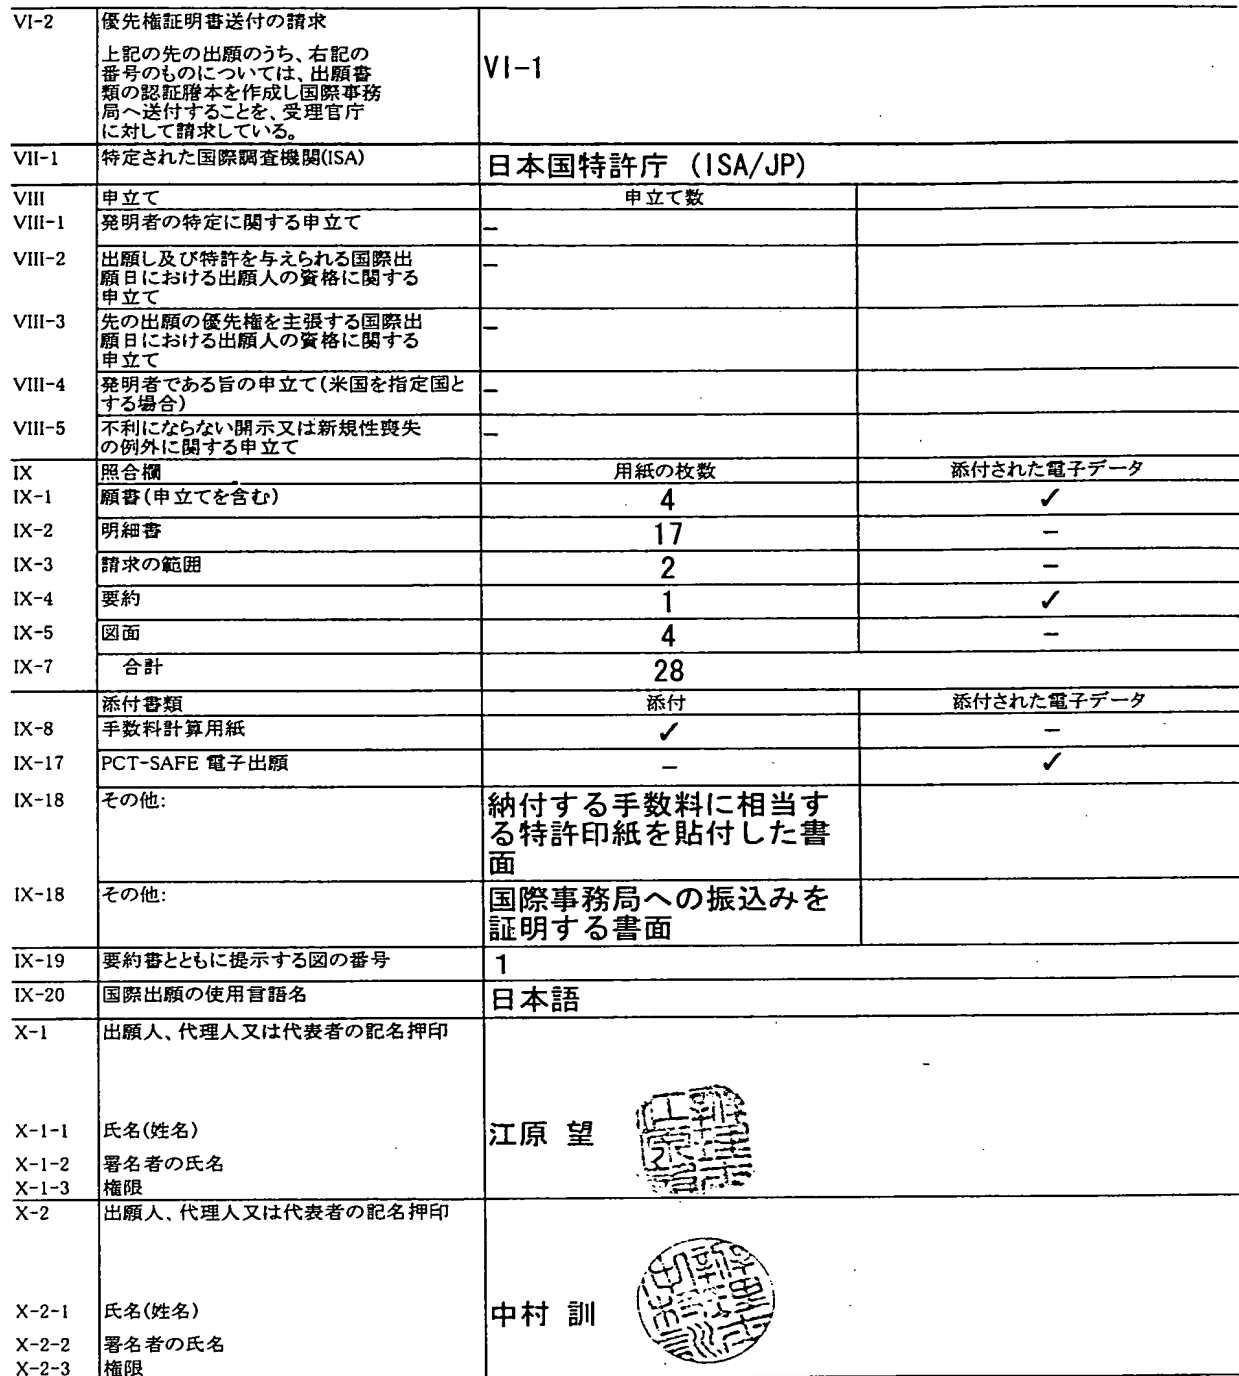 VI-2 優先権証明書送付の請求
上記の先の出願のうち、右記の
番号のものについては、出願書
類の認証謄本を作成し国際事務
局へ送付することを、受理官庁
に対して請求している。
VI-1
VII-1 特定された国際調査機関(ISA) 日本国特許庁 (ISA/JP)
VIII 申立て 申立て数
VIII-1 発明者の特定に関する申立て –
VIII-2 出願し及び特許を与えられる国際出 –
願日における出願人の資格に関する
申立て
VIII-3 先の出願の優先権を主張する国際出 –
願日における出願人の資格に関する
申立て
VIII-4 発明者である旨の申立て(米国を指定国と –
する場合)
VIII-5 不利にならない開示又は新規性喪失 –
の例外に関する申立て
IX 照合欄 用紙の枚数 添付された電子データ
IX-1 願書(申立てを含む) 4 ✓
IX-2 明細書 17 –
IX-3 請求の範囲 2 –
IX-4 要約 1 ✓
IX-5 図面 4 –
IX-7 合計 28
添付書類 添付 添付された電子データ
IX-8 手数料計算用紙 ✓ –
IX-17 PCT-SAFE 電子出願 – ✓
IX-18 その他: 納付する手数料に相当す
る特許印紙を貼付した書
面
IX-18 その他: 国際事務局への振込みを
証明する書面
IX-19 要約書とともに提示する図の番号 1
IX-20 国際出願の使用言語名 日本語
X-1 出願人、代理人又は代表者の記名押印
X-1-1 氏名(姓名) 江原 望
X-1-2 署名者の氏名
X-1-3 権限
X-2 出願人、代理人又は代表者の記名押印
X-2-1 氏名(姓名) 中村 訓
X-2-2 署名者の氏名
X-2-3 権限